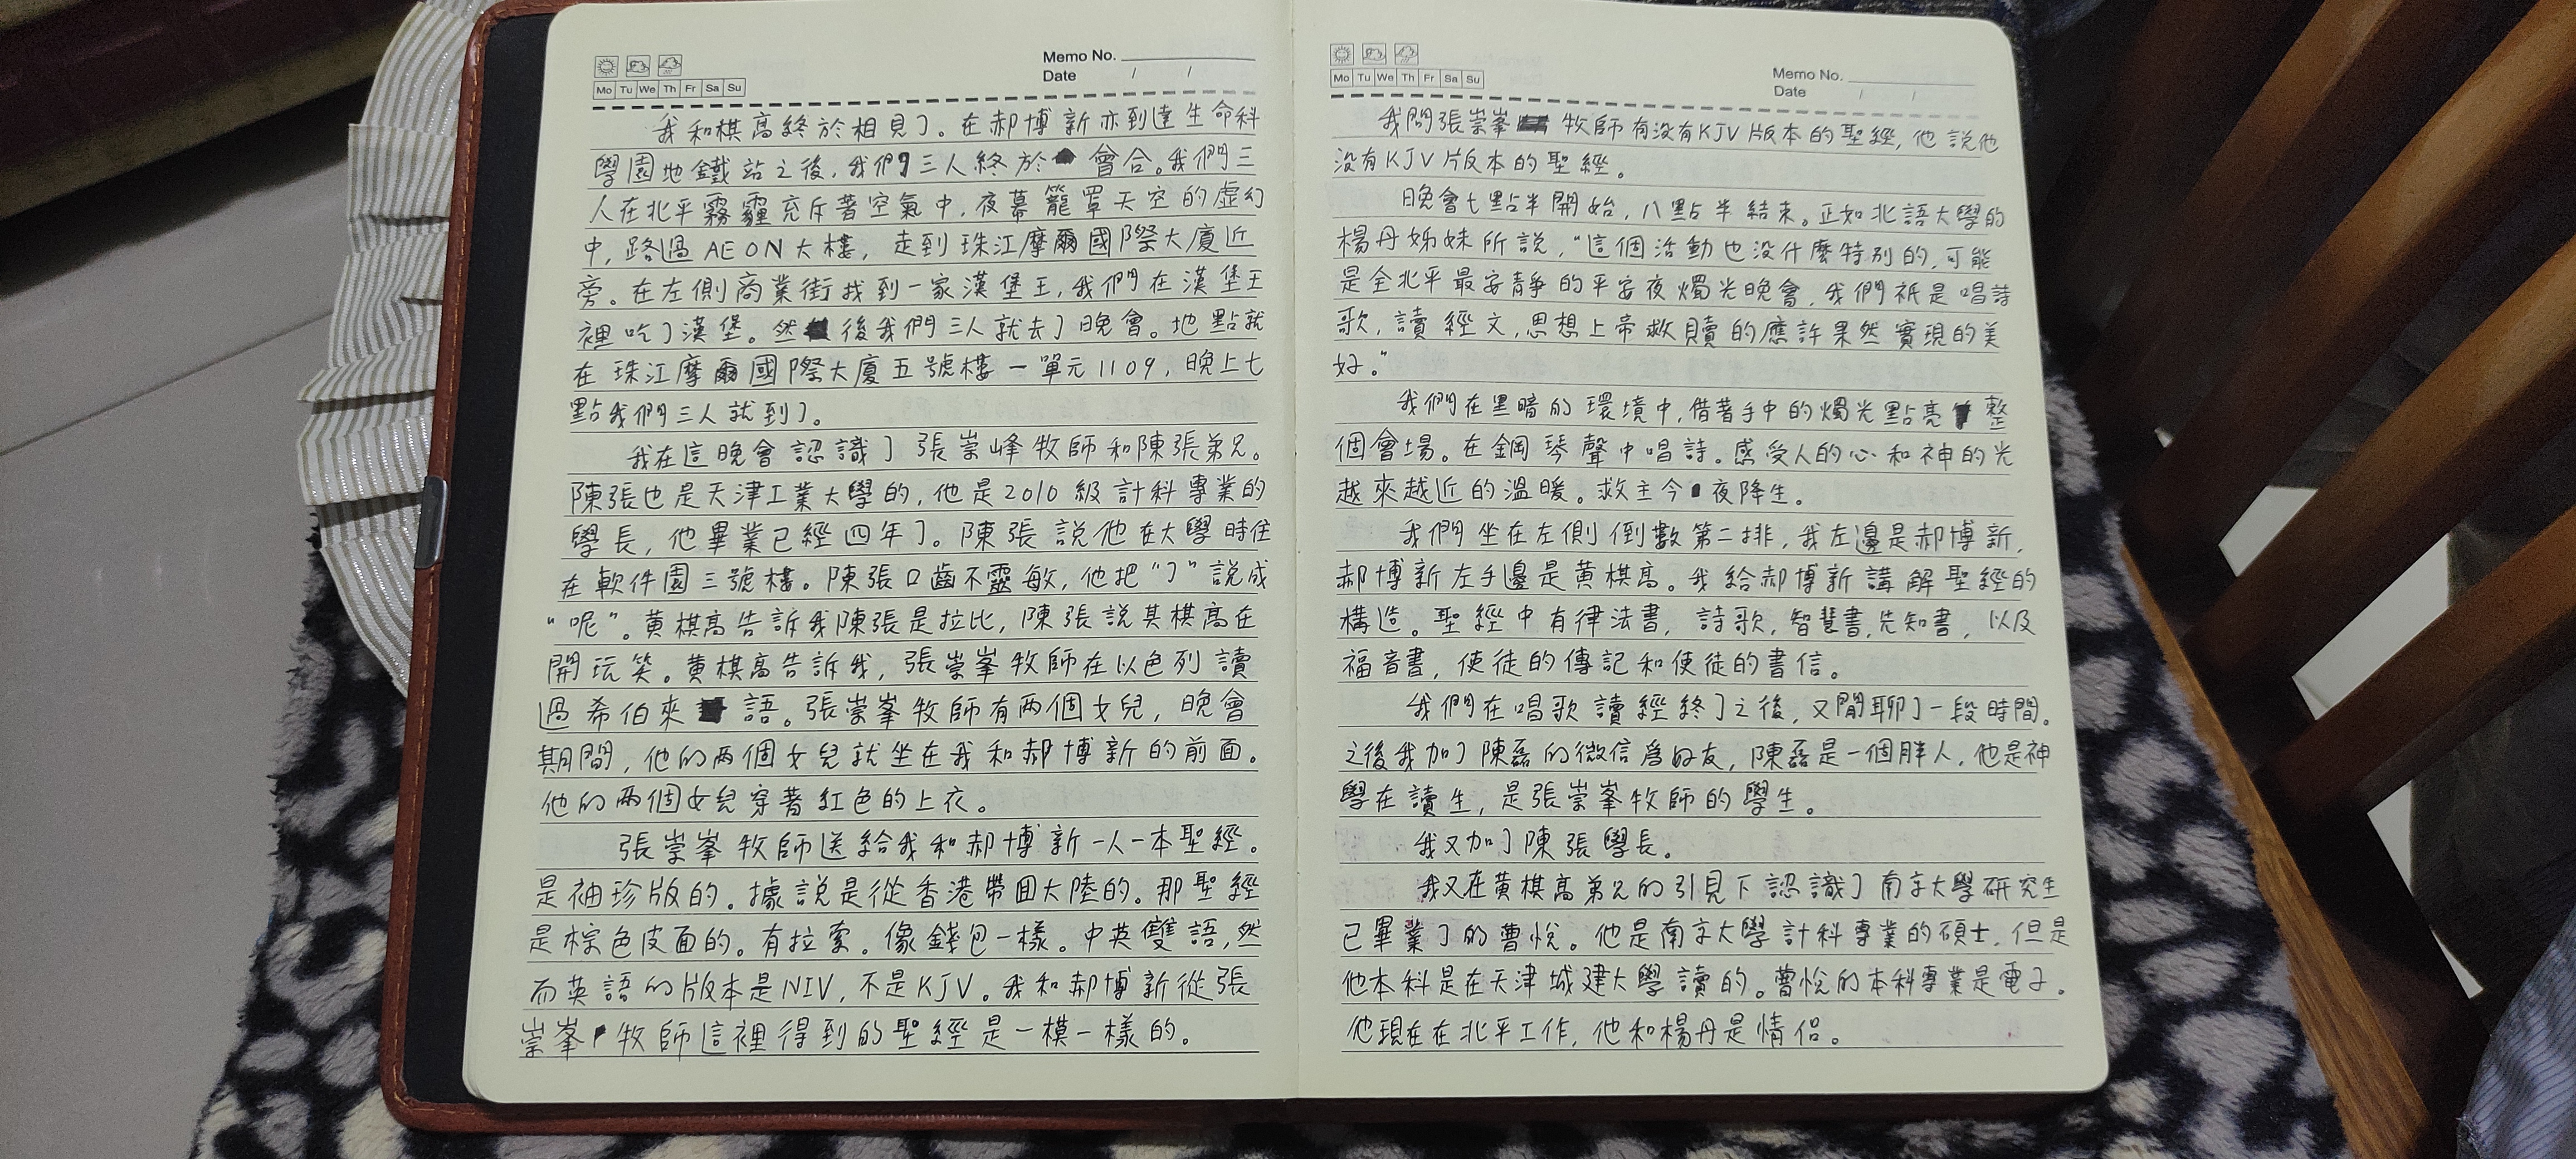 Memo No.
Date / /
Mo Tu We Th Fr Sa Su
我和棋高終於相見了。在郝博新亦到達生命科
學園地鐵站之後,我們三人終於會合。我們三
人在北平霧霾充斥著空氣中,夜幕籠罩天空的虛幻
中,路過AEON大樓,走到珠江摩爾國際大廈近
旁。在左側商業街找到一家漢堡王,我們在漢堡王
裡吃了漢堡。然後我們三人就去了晚會。地點就
在珠江摩爾國際大廈五號樓一單元1109,晚上七
點我們三人就到了。
我在這晚會認識了張崇峰牧師和陳張弟兄。
陳張也是天津工業大學的,他是2010級計科專業的
學長,他畢業已經四年了。陳張說他在大學時住
在軟件園三號樓。陳張口齒不靈敏,他把“了”說成
“呢”。黃棋高告訴我陳張是拉比,陳張說其棋高在
開玩笑。黃棋高告訴我,張崇峯牧師在以色列讀
過希伯來語。張崇峯牧師有兩個女兒,晚會
期間,他的兩個女兒就坐在我和郝博新的前面。
他的兩個女兒穿著紅色的上衣。
張崇峯牧師送給我和郝博新一人一本聖經。
是袖珍版的。據說是從香港帶回大陸的。那聖經
是棕色皮面的。有拉索。像錢包一樣。中英雙語,然
而英語的版本是NIV,不是KJV。我和郝博新從張
崇峯牧師這裡得到的聖經是一模一樣的。
Memo No.
Date / /
Mo Tu We Th Fr Sa Su
我問張崇峯牧師有沒有KJV版本的聖經,他說他
沒有KJV版本的聖經。
晚會七點半開始,八點半結束。正如北語大學的
楊丹姊妹所說,“這個活動也沒什麼特別的,可能
是全北平最安靜的平安夜燭光晚會,我們祇是唱詩
歌,讀經文,思想上帝救贖的應許果然實現的美
好。”
我們在黑暗的環境中,借著手中的燭光點亮整
個會場。在鋼琴聲中唱詩。感受人的心和神的光
越來越近的溫暖。救主今夜降生。
我們坐在左側倒數第二排,我左邊是郝博新,
郝博新左手邊是黃棋高。我給郝博新講解聖經的
構造。聖經中有律法書,詩歌,智慧書,先知書,以及
福音書,使徒的傳記和使徒的書信。
我們在唱歌讀經終了之後,又閒聊了一段時間。
之後我加了陳磊的微信為好友,陳磊是一個胖人,他是神
學在讀生,是張崇峯牧師的學生。
我又加了陳張學長。
我又在黃棋高弟兄的引見下認識了南京大學研究生
已畢業了的曹悅。他是南京大學計科專業的碩士,但是
他本科是在天津城建大學讀的。曹悅的本科專業是電子。
他現在在北平工作,他和楊丹是情侶。